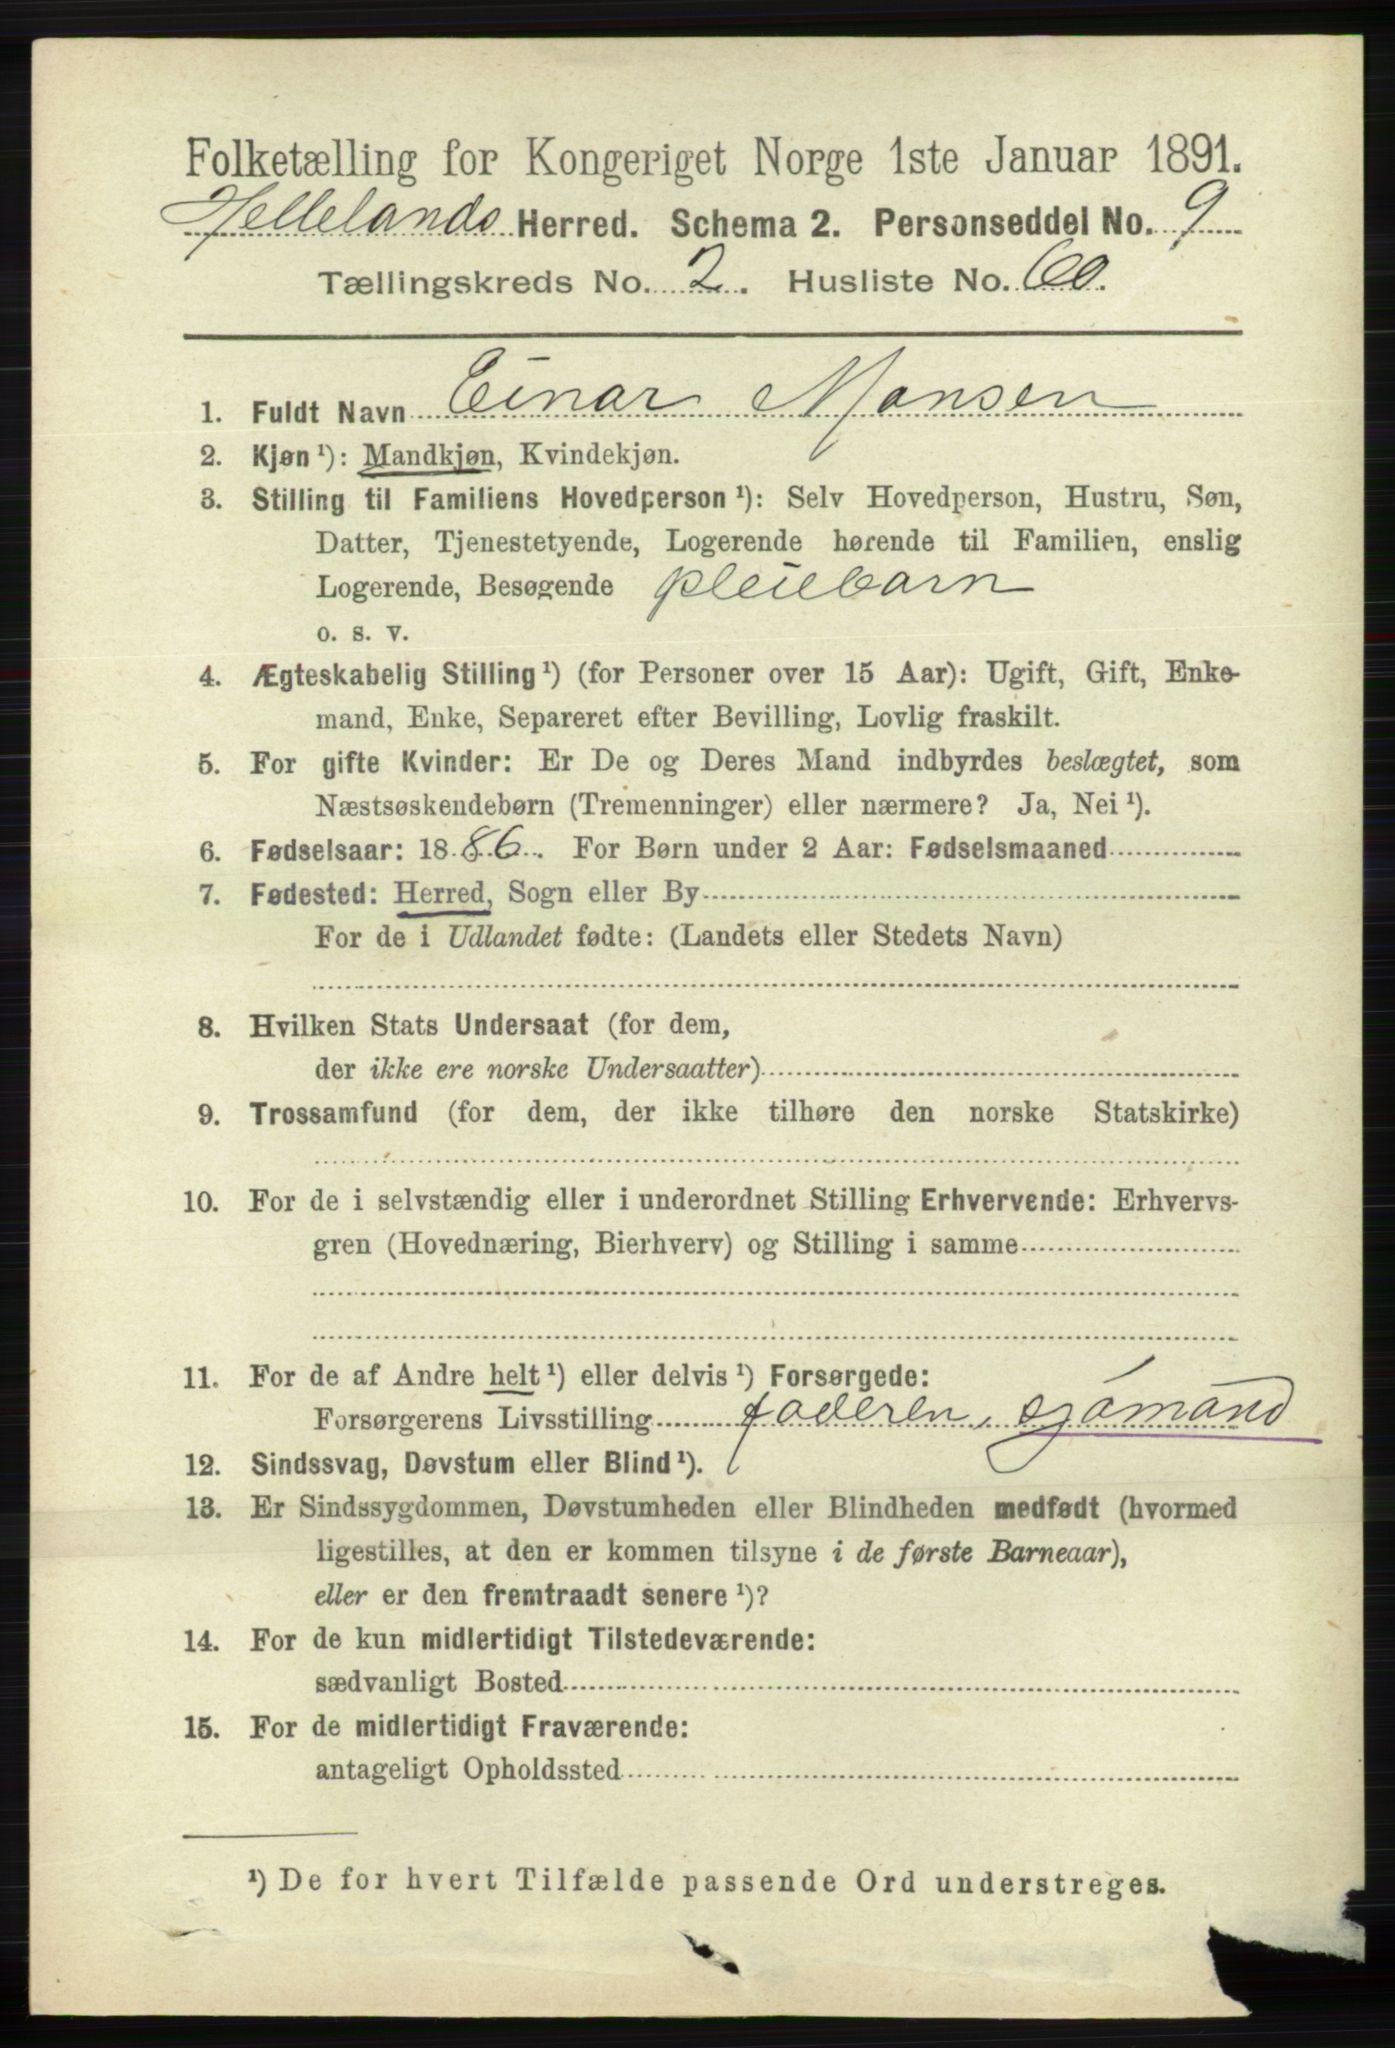 Folketælling for Kongeriget Norge 1ste Januar 1891.
Hellelands Herred. Schema 2. Personseddel No. 9
Tællingskreds No. 2. Husliste No. 60.
1. Fuldt Navn Einar Monsen
2. Kjøn ¹): Mandkjøn, Kvindekjøn.
3. Stilling til Familiens Hovedperson ¹): Selv Hovedperson, Hustru, Søn,
Datter, Tjenestetyende, Logerende hørende til Familien, enslig
Logerende, Besøgende pleiebarn
o. s. v.
4. Ægteskabelig Stilling ¹) (for Personer over 15 Aar): Ugift, Gift, Enke-
mand, Enke, Separeret efter Bevilling, Lovlig fraskilt.
5. For gifte Kvinder: Er De og Deres Mand indbyrdes beslægtet, som
Næstsøskendebørn (Tremenninger) eller nærmere? Ja, Nei ¹).
6. Fødselsaar: 1886. For Børn under 2 Aar: Fødselsmaaned
7. Fødested: Herred, Sogn eller By
For de i Udlandet fødte: (Landets eller Stedets Navn)
8. Hvilken Stats Undersaat (for dem,
der ikke ere norske Undersaatter)
9. Trossamfund (for dem, der ikke tilhøre den norske Statskirke)
10. For de i selvstændig eller i underordnet Stilling Erhvervende: Erhvervs-
gren (Hovednæring, Bierhverv) og Stilling i samme
11. For de af Andre helt ¹) eller delvis ¹) Forsørgede:
Forsørgerens Livsstilling faderen, sjømand
12. Sindssvag, Døvstum eller Blind ¹).
13. Er Sindssygdommen, Døvstumheden eller Blindheden medfødt (hvormed
ligestilles, at den er kommen tilsyne i de første Barneaar),
eller er den fremtraadt senere ¹)?
14. For de kun midlertidigt Tilstedeværende:
sædvanligt Bosted
15. For de midlertidigt Fraværende:
antageligt Opholdssted
¹) De for hvert Tilfælde passende Ord understreges.